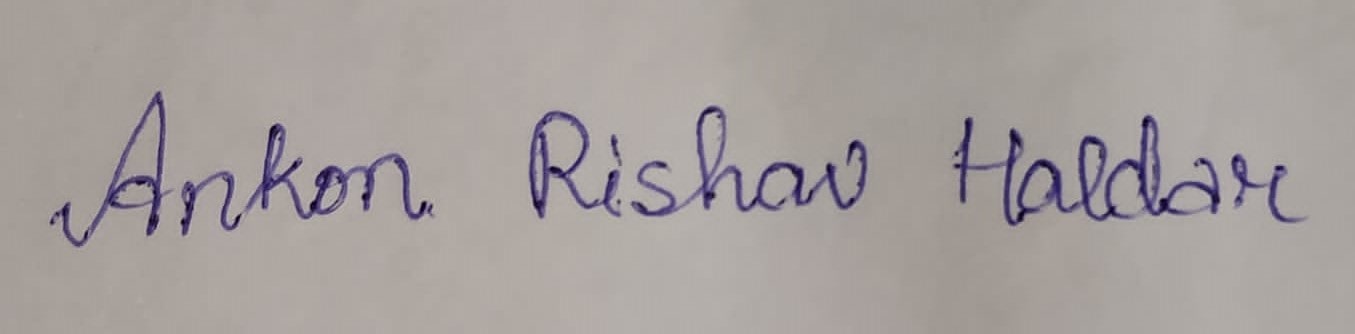 Ankon Rishav Haldar